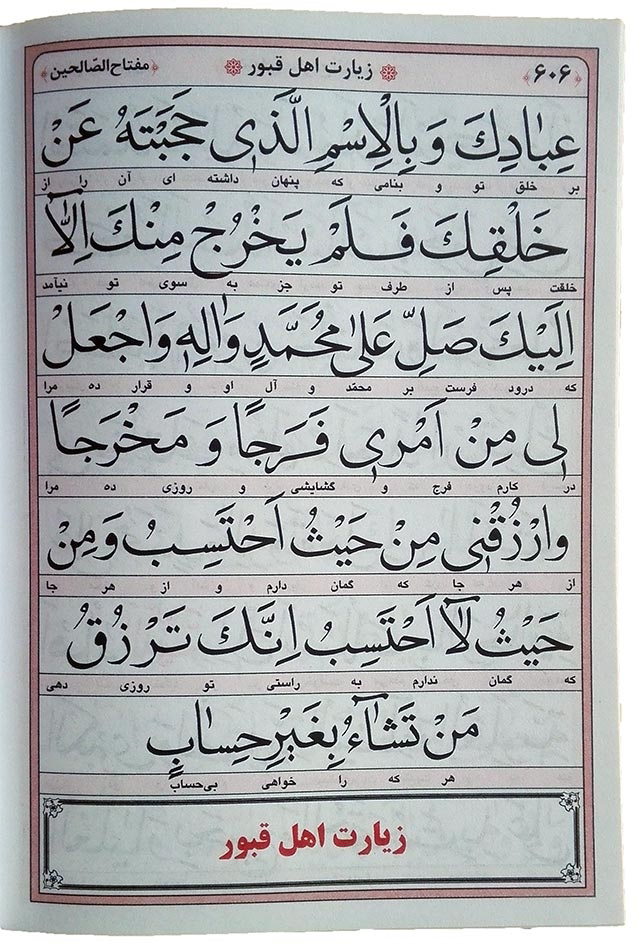 ﴿۶۰۶﴾ زیارت اهل قبور ﴿مفتاح الصّالحین﴾
عِبٰادِكَ وَ بِالْاِسْمِ الَّذٖی حَجَبْتَهُ عَنْ
بر خلق تو و بنامی که پنهان داشته ای آن را از
خَلْقِكَ فَلَمْ یَخْرُجْ مِنْكَ اِلّٰا
خلقت پس از طرف تو جز به سوی تو نیآمد
اِلَیْكَ صَلِّ عَلیٰ مُحَمَّدٍ وَاٰلِهٖ وَاجْعَلْ
که درود فرست بر محمّد و آل او و قرار ده مرا
لٖی مِنْ اَمْرٖی فَرَجًا وَ مَخْرَجًا
در کارم فرج و گشایشی و روزی ده مرا
وَارْزُقْنٖی مِنْ حَیْثُ اَحْتَسِبُ وَمِنْ
از هر جا که گمان دارم و از هر جا
حَیْثُ لٰٓا اَحْتَسِبُ اِنَّكَ تَرْزُقُ
که گمان ندارم به راستی تو روزی دهی
مَنْ تَشٰٓاءُ بِغَیْرِ حِسٰابٍ
هر که را خواهی بی‌حساب
زیارت اهل قبور